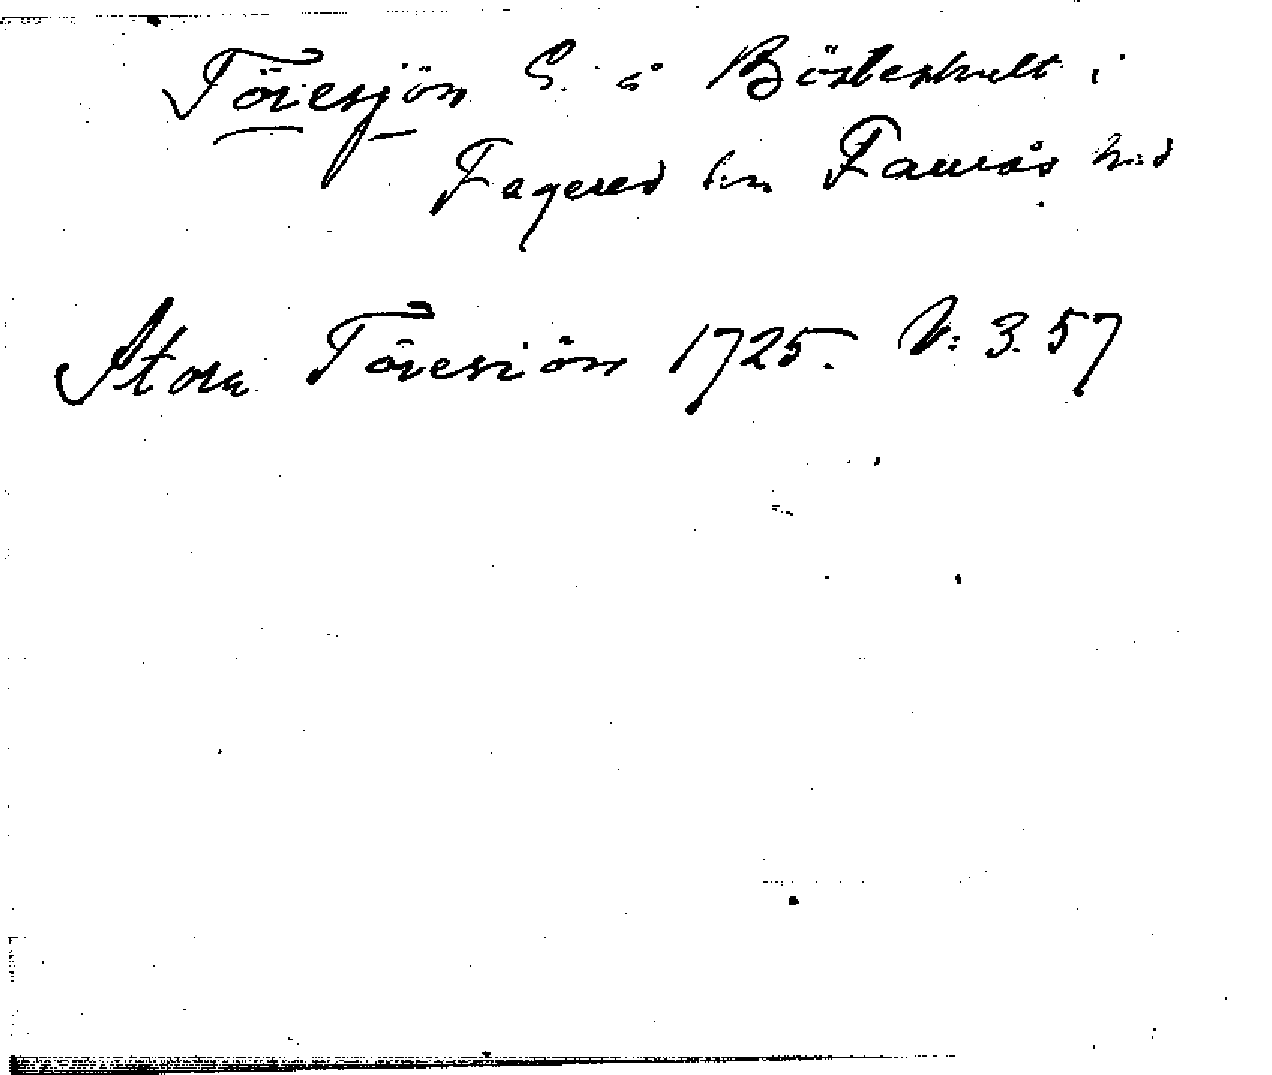 Töresjön S. å Bösteshult i
Fagered sn Faurås hd
Stora Töresjön 1725. V: 3.57